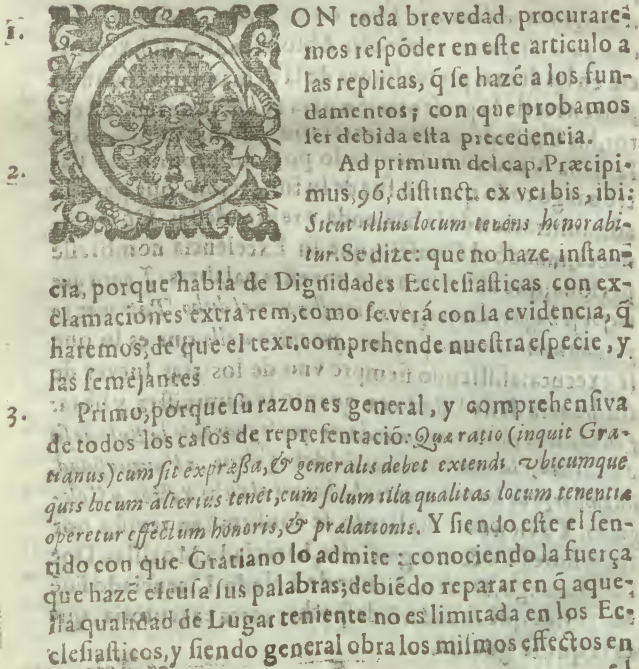 1. CON toda brevedad procurare-
mos respõder en este articulo a
las replicas, q̃ se hazẽ a los fun-
damentos; con que probamos
ser debida esta precedencia.
2. Ad primum del cap. Præcipi-
mus, 96, distinct. ex verbis, ibi:
Sicut illius locum tenens honorabi-
tur. Se dize: que no haze instan-
cia, porque habla de Dignidades Ecclesiasticas con ex-
clamaciones extra rem, como se verá con la evidencia, q̃
haremos, de que el text. comprehende nuestra especie, y
las semejantes
3. Primo, porque su razon es general, y comprehensiva
de todos los casos de representaciõ: Quæ ratio (inquit Gra-
tianus) cum sit expræssa, & generalis debet extendi vbicumque
quis locum alterius tenet, cum solum illa qualitas locum tenentis
operetur effectum honoris, & prælationis. Y siendo este el sen-
tido con que Gratiano lo admite: conociendo la fuerça
que hazẽ escusa sus palabras; debiẽdo reparar en q̃ aque-
lla qualidad de Lugar teniente no es limitada en los Ec-
clesiasticos, y siendo general obra los mismos effectos en